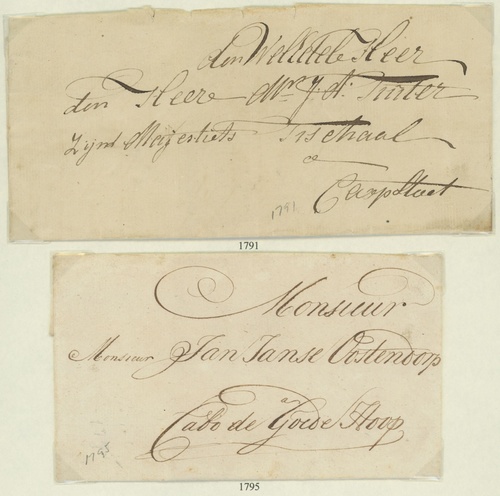 den WelEdele Heer
den Heere Mr. J. A. Truter
Zijne Majestiets Fischaal
a
Caapstaat
1791
1791
Monsieur
Monsieur Jan Janse Oostendorp
a
Cabo de Goede Hoop
1795
1795